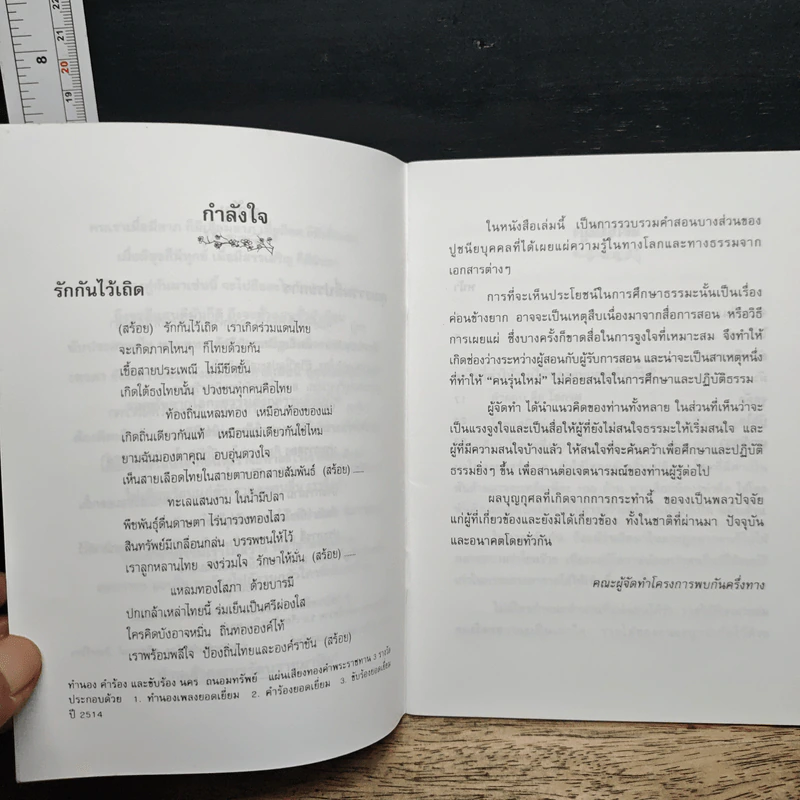 8
22
21
20
19
กำลังใจ
รักกันไว้เถิด
(สร้อย) รักกันไว้เถิด เราเกิดร่วมแดนไทย
จะเกิดภาคไหนๆ ก็ไทยด้วยกัน
เชื้อสายประเพณี ไม่มีขีดขั้น
เกิดใต้ธงไทยนั้น ปวงชนทุกคนคือไทย
ท้องถิ่นแหลมทอง เหมือนท้องของแม่
เกิดถิ่นเดียวกันแท้ เหมือนแม่เดียวกันใช่ไหม
ยามฉันมองตาคุณ อบอุ่นดวงใจ
เห็นสายเลือดไทยในสายตาบอกสายสัมพันธ์ (สร้อย).....
ทะเลแสนงาม ในน้ำมีปลา
พืชพันธุ์ดื่นดาษตา ไร่นารวงทองไสว
สินทรัพย์มีเกลื่อนกล่น บรรพชนให้ไว้
เราลูกหลานไทย จงร่วมใจ รักษาให้มั่น (สร้อย).....
แหลมทองโสภา ด้วยบารมี
ปกเกล้าเหล่าไทยนี้ ร่มเย็นเป็นศรีผ่องใส
ใครคิดบังอาจหมิ่น ถิ่นทององค์ไท้
เราพร้อมพลีใจ ป้องถิ่นไทยและองค์ราชัน (สร้อย)
ทำนอง คำร้อง และขับร้อง นคร ถนอมทรัพย์ แผ่นเสียงทองคำพระราชทาน 3 รางวัล
ประกอบด้วย 1. ทำนองเพลงยอดเยี่ยม 2. คำร้องยอดเยี่ยม 3. ขับร้องยอดเยี่ยม
ปี 2514
ในหนังสือเล่มนี้ เป็นการรวบรวมคำสอนบางส่วนของ
ปูชนียบุคคลที่ได้เผยแผ่ความรู้ในทางโลกและทางธรรมจาก
เอกสารต่างๆ
การที่จะเห็นประโยชน์ในการศึกษาธรรมะนั้นเป็นเรื่อง
ค่อนข้างยาก อาจจะเป็นเหตุสืบเนื่องมาจากสื่อการสอน หรือวิธี
การเผยแผ่ ซึ่งบางครั้งก็ขาดสื่อในการจูงใจที่เหมาะสม จึงทำให้
เกิดช่องว่างระหว่างผู้สอนกับผู้รับการสอน และน่าจะเป็นสาเหตุหนึ่ง
ที่ทำให้ “คนรุ่นใหม่” ไม่ค่อยสนใจในการศึกษาและปฏิบัติธรรม
ผู้จัดทำ ได้นำแนวคิดของท่านทั้งหลาย ในส่วนที่เห็นว่าจะ
เป็นแรงจูงใจและเป็นสื่อให้ผู้ที่ยังไม่สนใจธรรมะให้เริ่มสนใจ และ
ผู้ที่มีความสนใจบ้างแล้ว ให้สนใจที่จะค้นคว้าเพื่อศึกษาและปฏิบัติ
ธรรมยิ่งๆ ขึ้น เพื่อสานต่อเจตนารมณ์ของท่านผู้รู้ต่อไป
ผลบุญกุศลที่เกิดจากการกระทำนี้ ขอจงเป็นพลวปัจจัย
แก่ผู้ที่เกี่ยวข้องและยังมิได้เกี่ยวข้อง ทั้งในชาติที่ผ่านมา ปัจจุบัน
และอนาคตโดยทั่วกัน
คณะผู้จัดทำโครงการพบกันครึ่งทาง